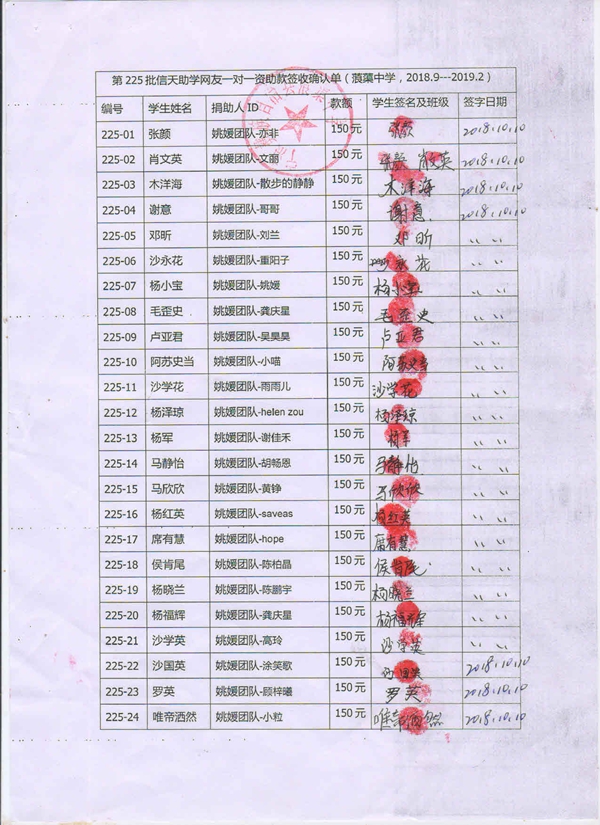 第225批信天助学网友一对一资助款签收确认单（蒗蕖中学，2018.9---2019.2）
编号 学生姓名 捐助人ID 款额 学生签名及班级 签字日期
225-01 张颜 姚媛团队-亦非 150元 张颜 2018.10.10
225-02 肖文英 姚媛团队-文丽 150元 张颜 肖文英 2018.10.10
225-03 木洋海 姚媛团队-散步的静静 150元 木洋海 2018.10.10
225-04 谢意 姚媛团队-哥哥 150元 谢意 2018.10.10
225-05 邓昕 姚媛团队-刘兰 150元 邓昕 〃 〃
225-06 沙永花 姚媛团队-重阳子 150元 永花 〃 〃
225-07 杨小宝 姚媛团队-姚媛 150元 杨小宝 〃 〃
225-08 毛歪史 姚媛团队-龚庆星 150元 毛歪史 〃 〃
225-09 卢亚君 姚媛团队-吴昊昊 150元 卢亚君 〃 〃
225-10 阿苏史当 姚媛团队-小喵 150元 阿苏史当 〃 〃
225-11 沙学花 姚媛团队-雨雨儿 150元 沙学花 〃 〃
225-12 杨泽琼 姚媛团队-helen zou 150元 杨泽琼 〃 〃
225-13 杨军 姚媛团队-谢佳禾 150元 杨军 〃 〃
225-14 马静怡 姚媛团队-胡畅恩 150元 马静怡 〃 〃
225-15 马欣欣 姚媛团队-黄铮 150元 马欣欣 〃 〃
225-16 杨红英 姚媛团队-saveas 150元 杨红英 〃 〃
225-17 席有慧 姚媛团队-hope 150元 席有慧 〃 〃
225-18 侯肯尾 姚媛团队-陈柏晶 150元 侯肯尾 〃 〃
225-19 杨晓兰 姚媛团队-陈鹏宇 150元 杨晓兰 〃 〃
225-20 杨福辉 姚媛团队-龚庆星 150元 杨福辉 〃 〃
225-21 沙学英 姚媛团队-高玲 150元 沙学英 〃 〃
225-22 沙国英 姚媛团队-涂笑歌 150元 沙国英 2018.10.10
225-23 罗英 姚媛团队-顾梓曦 150元 罗英 2018.10.10
225-24 唯帝洒然 姚媛团队-小粒 150元 唯帝洒然 2018.10.10